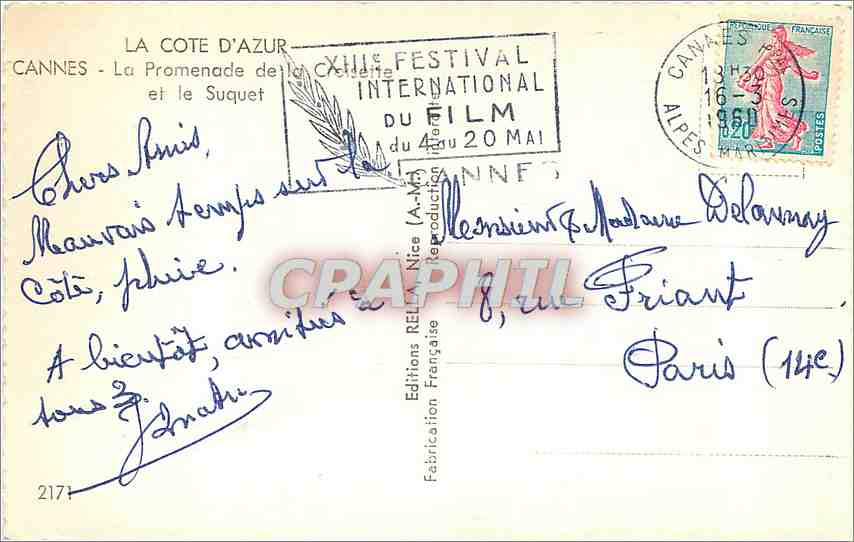 LA COTE D'AZUR
CANNES - La Promenade de la Croisette
et le Suquet
XIIIe FESTIVAL
INTERNATIONAL
DU FILM
du 4 au 20 MAI
CANNES
CANNES
13 H 30
16-3
1960
ALPES MARITIMES
REPUBLIQUE FRANÇAISE
0,20
POSTES
Chers Amis,
Mauvais temps sur la
Côte, pluie.
A bientôt, amitiés à
tous 2.
Monsieur & Madame Delaunay
8, rue Friant
Paris (14e)
Editions RELLA, Nice (A.-M.)
Fabrication Française Reproduction Interdite
2171
CPAPHIL